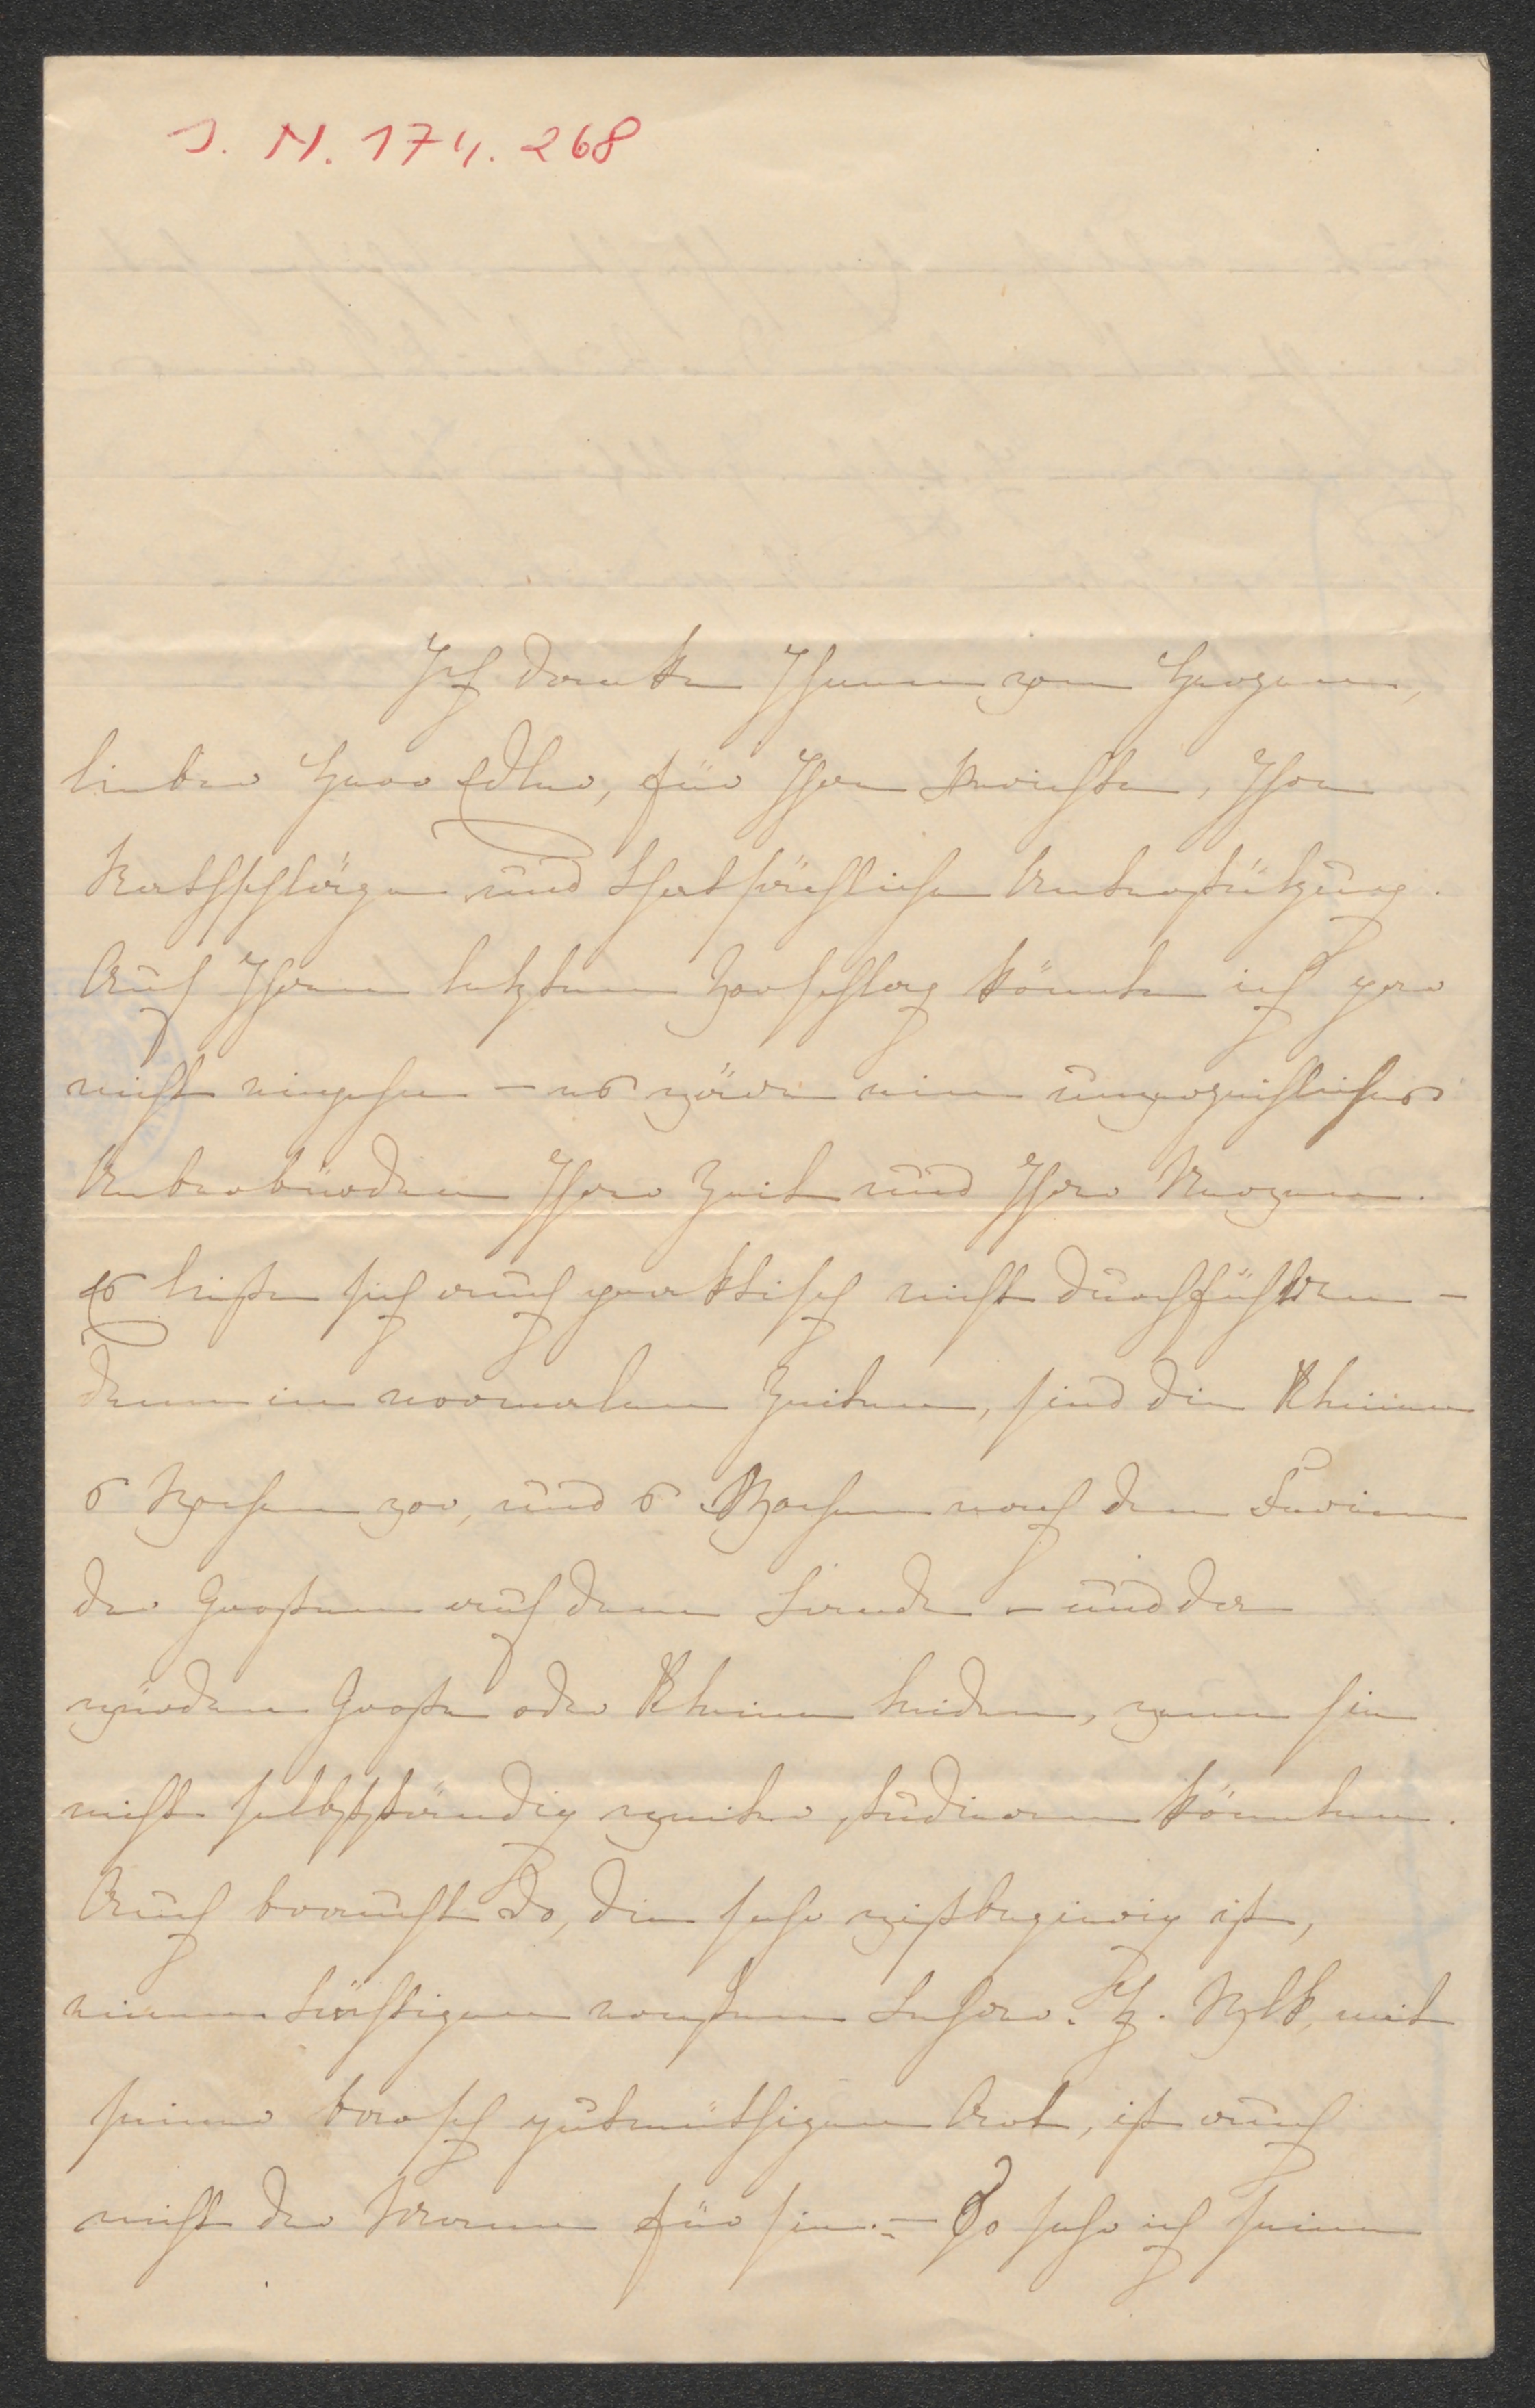 J. N. 174.268
Ich danke Ihnen von Herzen,
lieber Herr Edler, für Ihre Berichte, Ihre
Rathschläge und thatsächliche Unterstützung.
Auf Ihren letzten Vorschlag könnte ich gar
nicht eingehen – es wäre ein unverzeihliches
Überbürden Ihrer Zeit und Ihrer Nerven.
Es ließe sich auch praktisch nicht durchführen –
denn in normalen Zeiten, sind die Kleinen
6 Wochen vor, und 6 Wochen nach den Ferien
der Großen auf dem Lande – und da
würden Große oder Kleine leiden, wenn sie
nicht selbstständig weiter studieren könnten.
Auch braucht Do, die sehr wißbegierig ist,
einen tüchtigen ernsten Lehrer. H. Wlk, mit
seiner barsch gutmüthigen Art, ist auch
nicht der Mann für sie. – So sehr ich seine